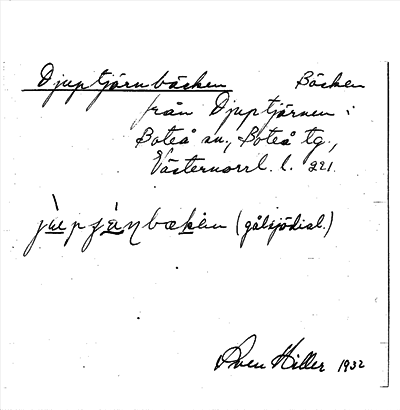 Djuptjärnbäcken Bäcken
från Djuptjärnen i
Boteå sn, Boteå tg.,
Västernorrl. l. 221.
(gålsjödial.)
Sven Hiller 1932